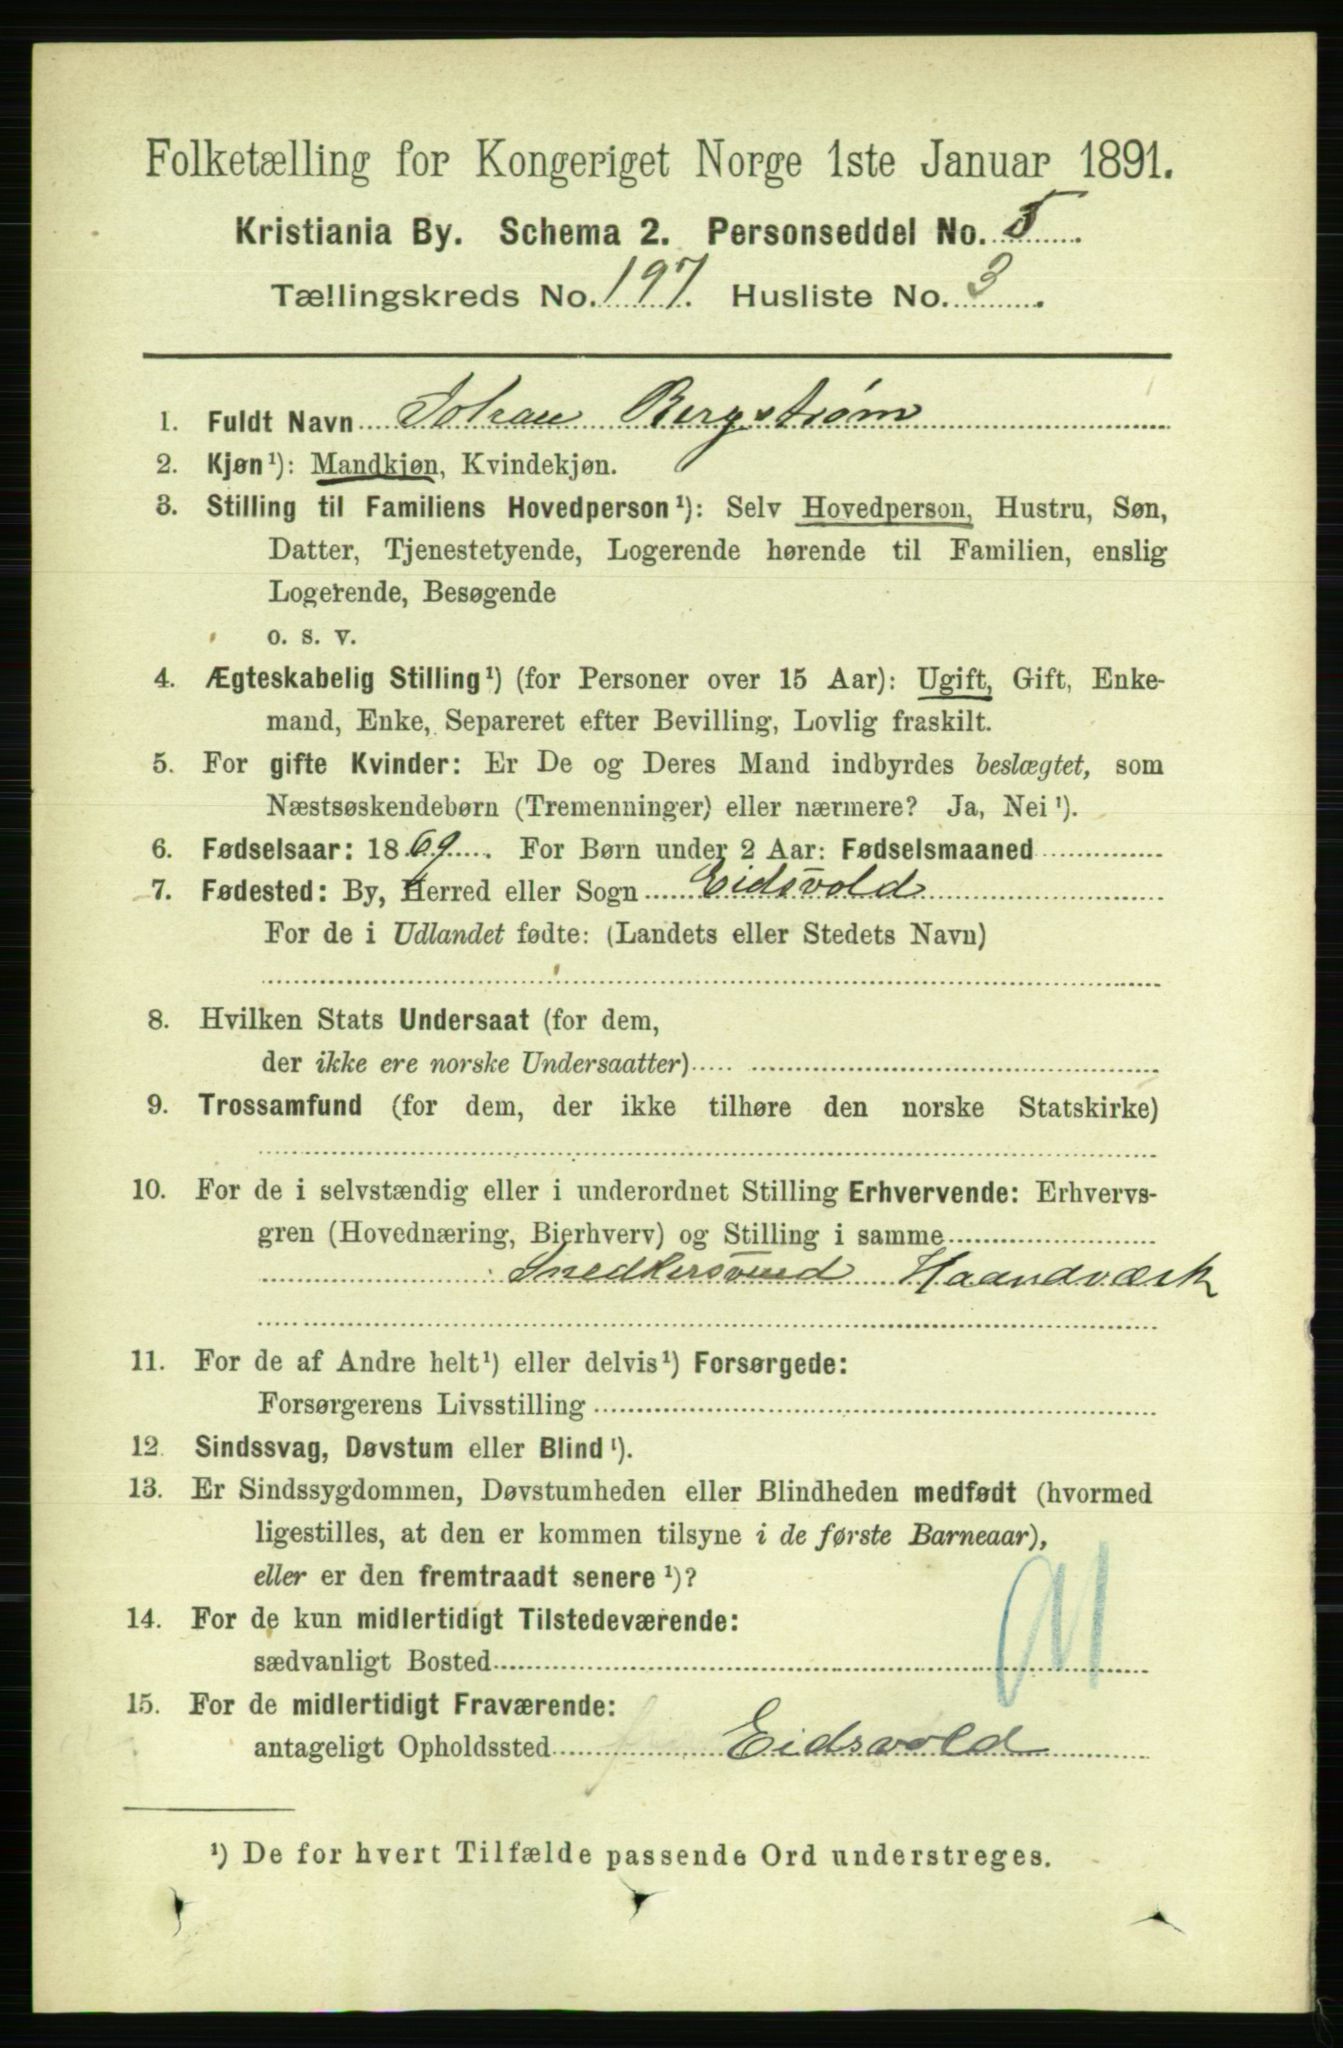 Folketælling for Kongeriget Norge 1ste Januar 1891.
Kristiania By. Schema 2. Personseddel No. 5
Tællingskreds No. 197. Husliste No. 3.
1. Fuldt Navn Johan Bergstrøm
2. Kjøn¹): Mandkjøn, Kvindekjøn.
3. Stilling til Familiens Hovedperson¹): Selv Hovedperson, Hustru, Søn,
Datter, Tjenestetyende, Logerende hørende til Familien, enslig
Logerende, Besøgende
o. s. v.
4. Ægteskabelig Stilling¹) (for Personer over 15 Aar): Ugift, Gift, Enke-
mand, Enke, Separeret efter Bevilling, Lovlig fraskilt.
5. For gifte Kvinder: Er De og Deres Mand indbyrdes beslægtet, som
Næstsøskendebørn (Tremenninger) eller nærmere? Ja, Nei¹).
6. Fødselsaar: 1869. For Børn under 2 Aar: Fødselsmaaned
7. Fødested: By, Herred eller Sogn Eidsvold
For de i Udlandet fødte: (Landets eller Stedets Navn)
8. Hvilken Stats Undersaat (for dem,
der ikke ere norske Undersaatter)
9. Trossamfund (for dem, der ikke tilhøre den norske Statskirke)
10. For de i selvstændig eller i underordnet Stilling Erhvervende: Erhvervs-
gren (Hovednæring, Bierhverv) og Stilling i samme
Snedkersvend Haandværk
11. For de af Andre helt¹) eller delvis¹) Forsørgede:
Forsørgerens Livsstilling
12. Sindssvag, Døvstum eller Blind¹).
13. Er Sindssygdommen, Døvstumheden eller Blindheden medfødt (hvormed
ligestilles, at den er kommen tilsyne i de første Barneaar),
eller er den fremtraadt senere¹)?
14. For de kun midlertidigt Tilstedeværende:
sædvanligt Bosted
15. For de midlertidigt Fraværende:
antageligt Opholdssted Eidsvold
¹) De for hvert Tilfælde passende Ord understreges.